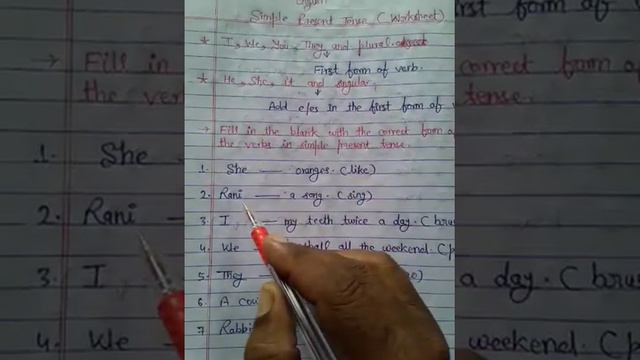 Simple Present Tense (Worksheet)
* I, We, You, They and plural
First form of verb.
* He, She, it and singular,
Add e/es in the first form of
→ Fill in the blank with the correct form
the verbs in simple present tense.
1. She — oranges. (like)
2. Rani — a song. (sing)
3. I — my teeth twice a day. (brus
4. We — all the weekend. (
5. They —
6. A
7. Rabbi